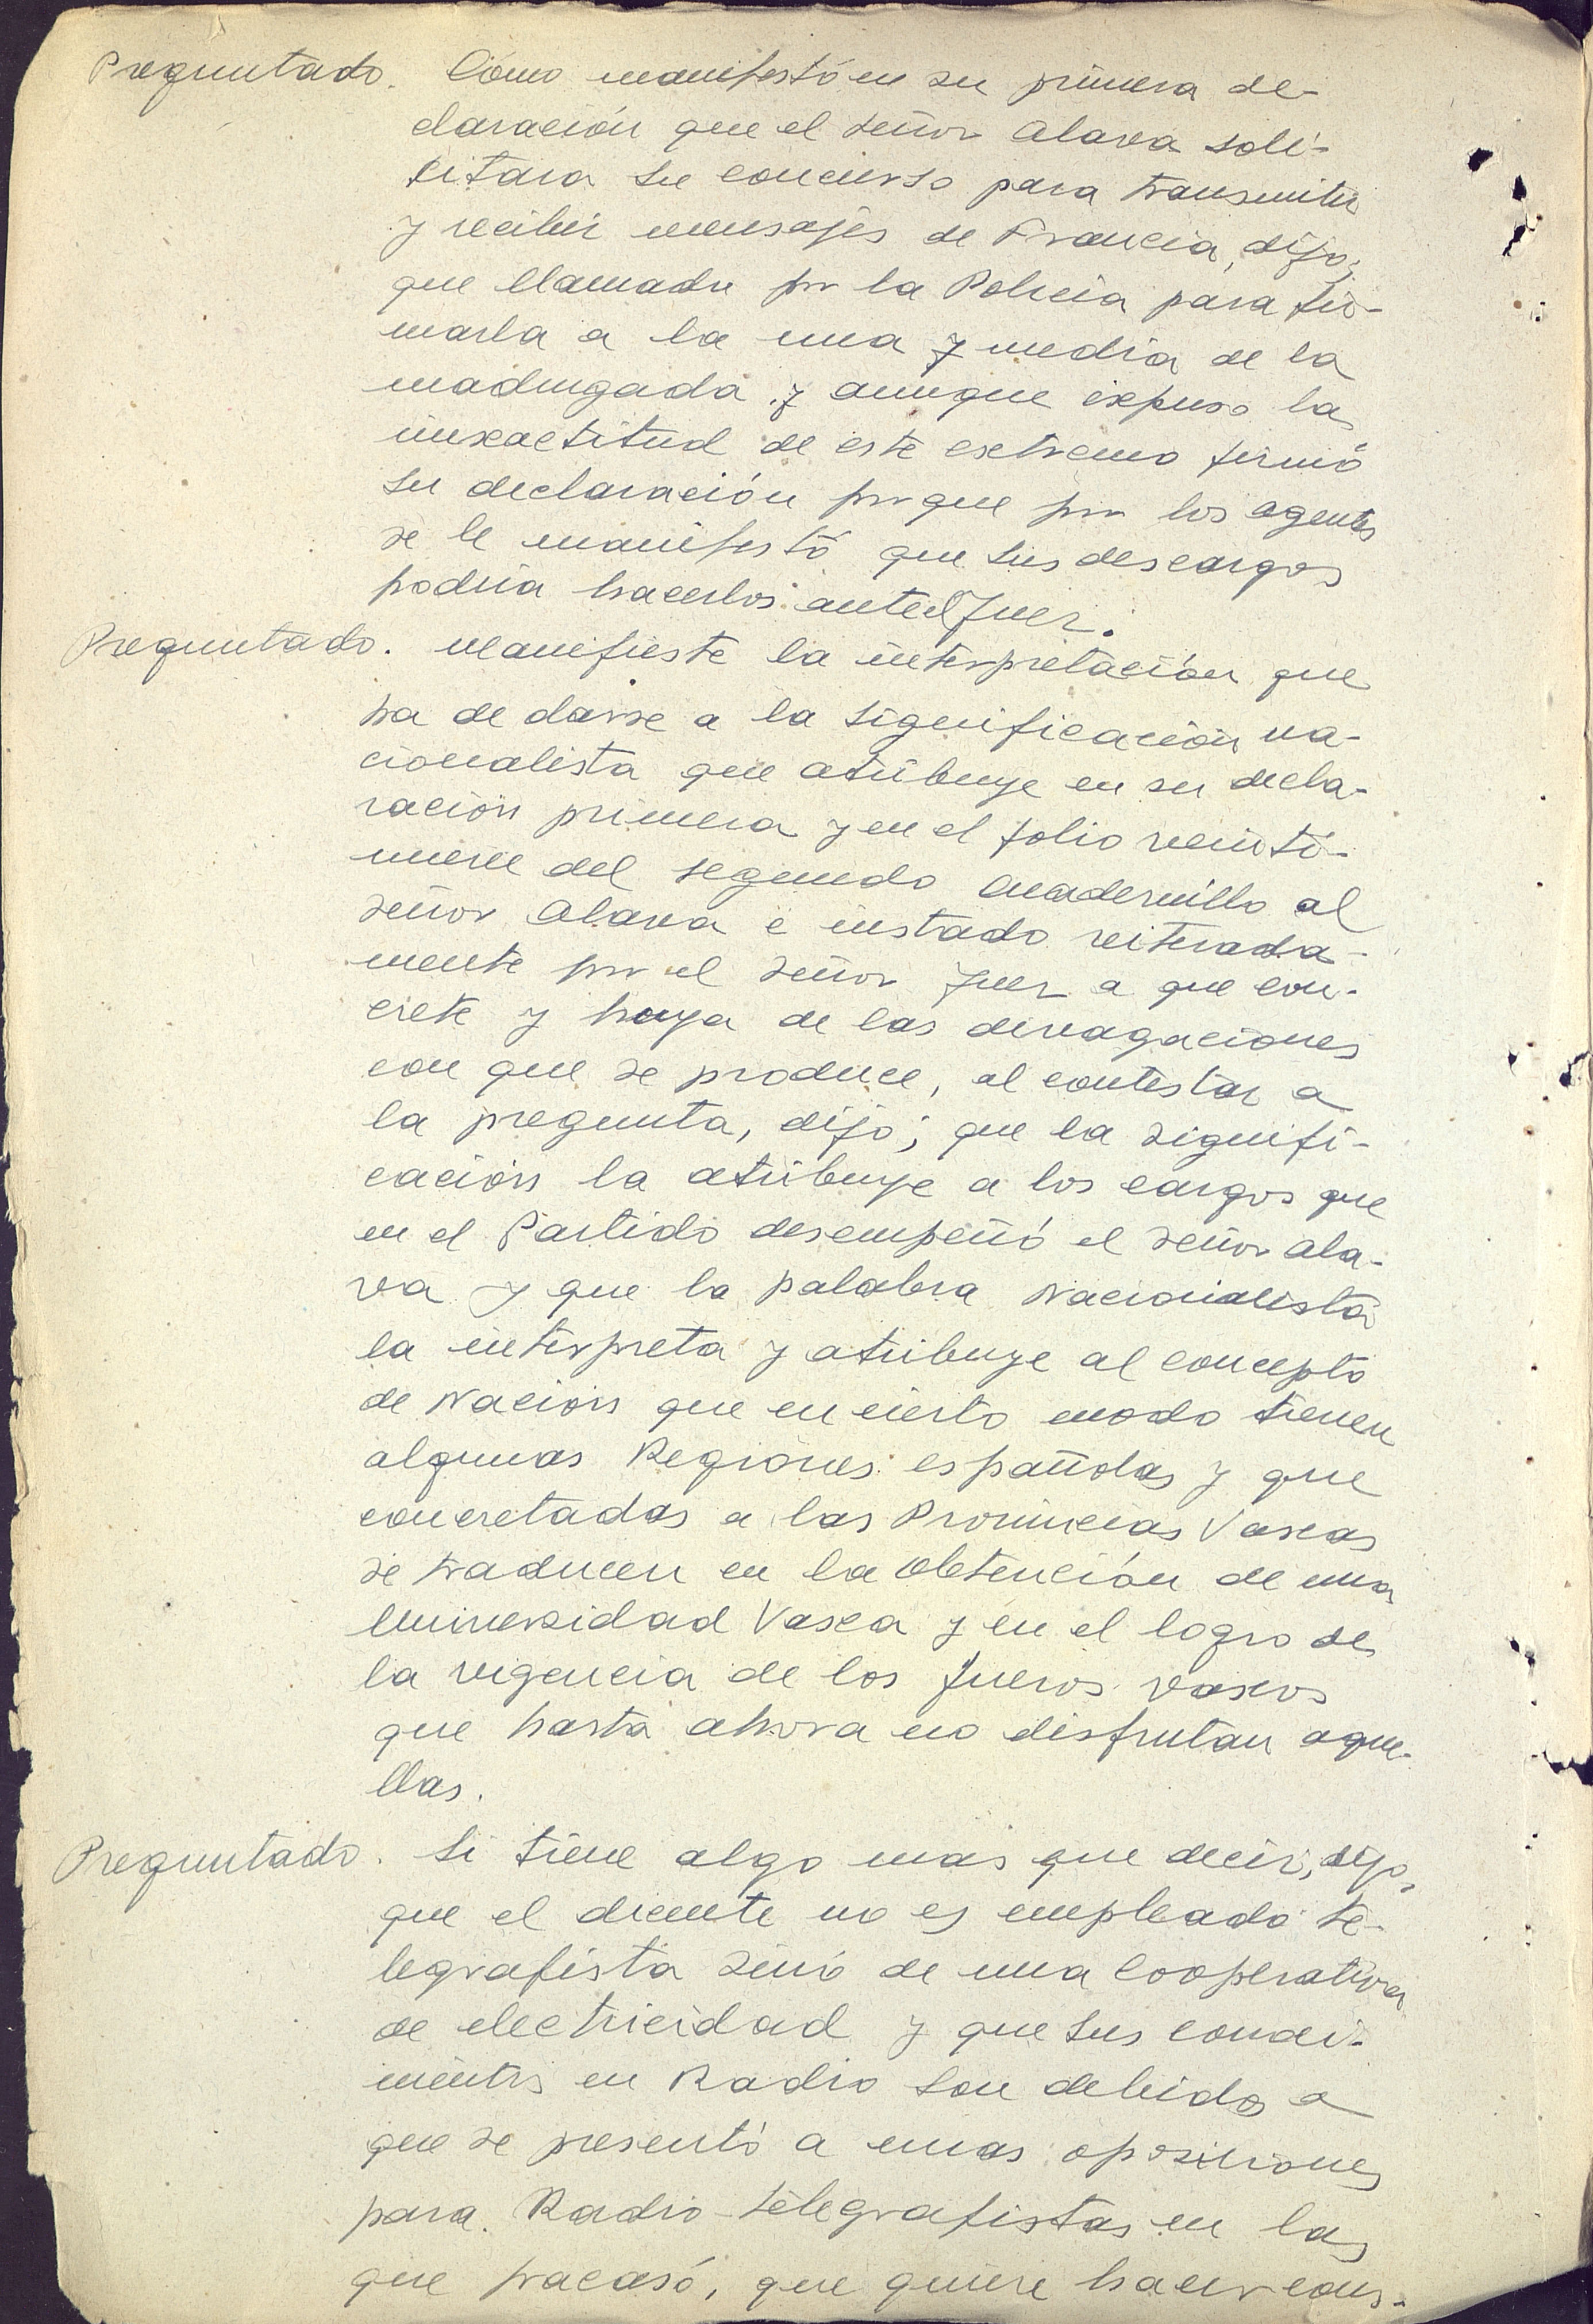 Preguntado. Cómo manifestó en su primera de-
claración que el señor Alava soli-
citara su concurso para transmitir
y recibir mensajes de Francia, dijo;
que llamado por la Policia para fir-
marla a la una y media de la
madrugada y aunque expuso la
inexactitud de este extremo firmó
su declaración porque por los agentes
se le manifestó que sus descargos
podria hacerlos ante el Juez.
Preguntado. Manifieste la interpretación que
ha de darse a la significación na-
cionalista que atribuye en su decla-
ración primera y en el folio veinti-
nueve del segundo cuadernillo al
señor Alava e instado reiterada-
mente por el señor Juez a que con-
crete y huya de las divagaciones
con que se produce, al contestar a
la pregunta, dijo; que la signifi-
cación la atribuye a los cargos que
en el Partido desempeñó el señor Ala-
va y que la palabra Nacionalista
la interpreta y atribuye al concepto
de Nación que en cierto modo tienen
algunas Regiones españolas y que
concretadas a las Provincias Vascas
se traducen en la obtención de una
Universidad Vasca y en el logro de
la vigencia de los fueros vascos
que hasta ahora no disfrutan aque-
llas.
Preguntado. Si tiene algo mas que decir, dijo,
que el dicente no es empleado te-
legrafista sinó de una Cooperativa
de electricidad y que sus conoci-
mientos en Radio son debidos a
que se presentó a unas oposiciones
para Radio-telegrafistas en las
que fracasó, que quiere hacer cons-